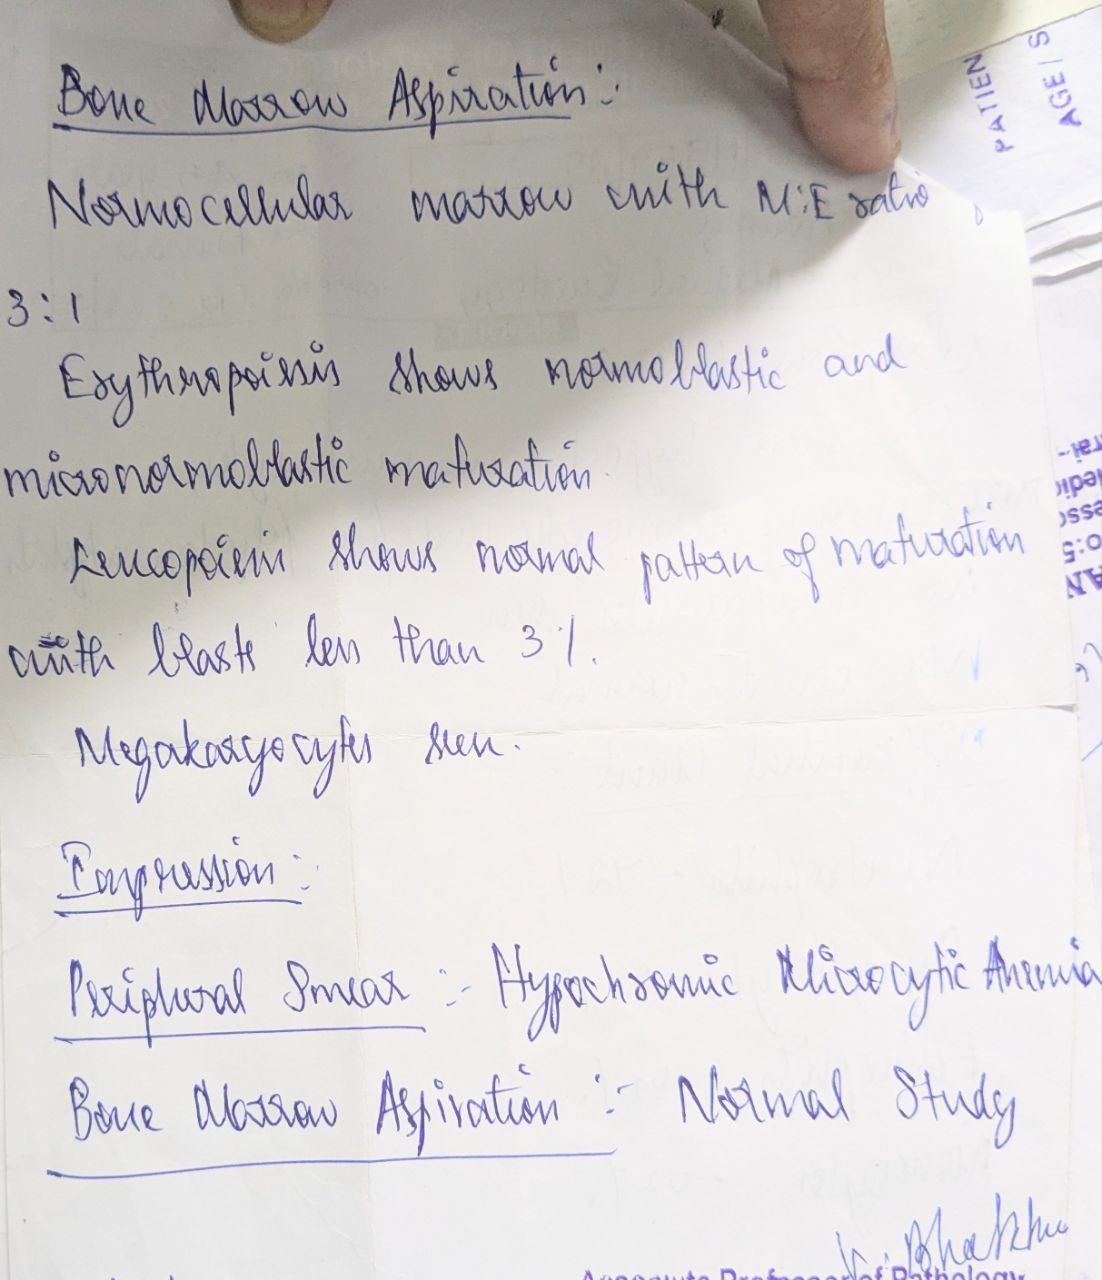 Bone Marrow Aspiration :-
Normocellular marrow with M:E ratio
3:1
Erythropoiesis shows normoblastic and
micronormoblastic maturation.
Leucopoiesis shows normal pattern of maturation
with blasts less than 3%.
Megakaryocytes seen.
Impression :-
Peripheral Smear :- Hypochromic Microcytic Anemia
Bone Marrow Aspiration :- Normal Study
Associate Professor of Pathology
PATIEN
AGE / S